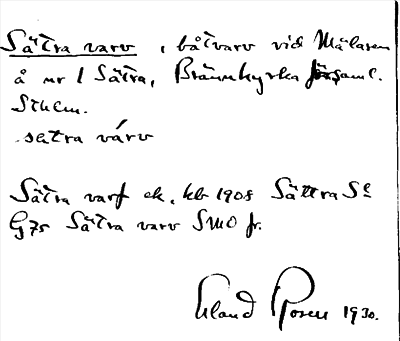 Sätra varv, båtvarv vid Mälaren
å nr 1 Sätra, Brännkyrka församl.
Sthlm.
sätra várv
Sätra varf ek. kb 1908 Sättra SE
G75 Sätra varv SMO fr.
Erland Rosell 1930.